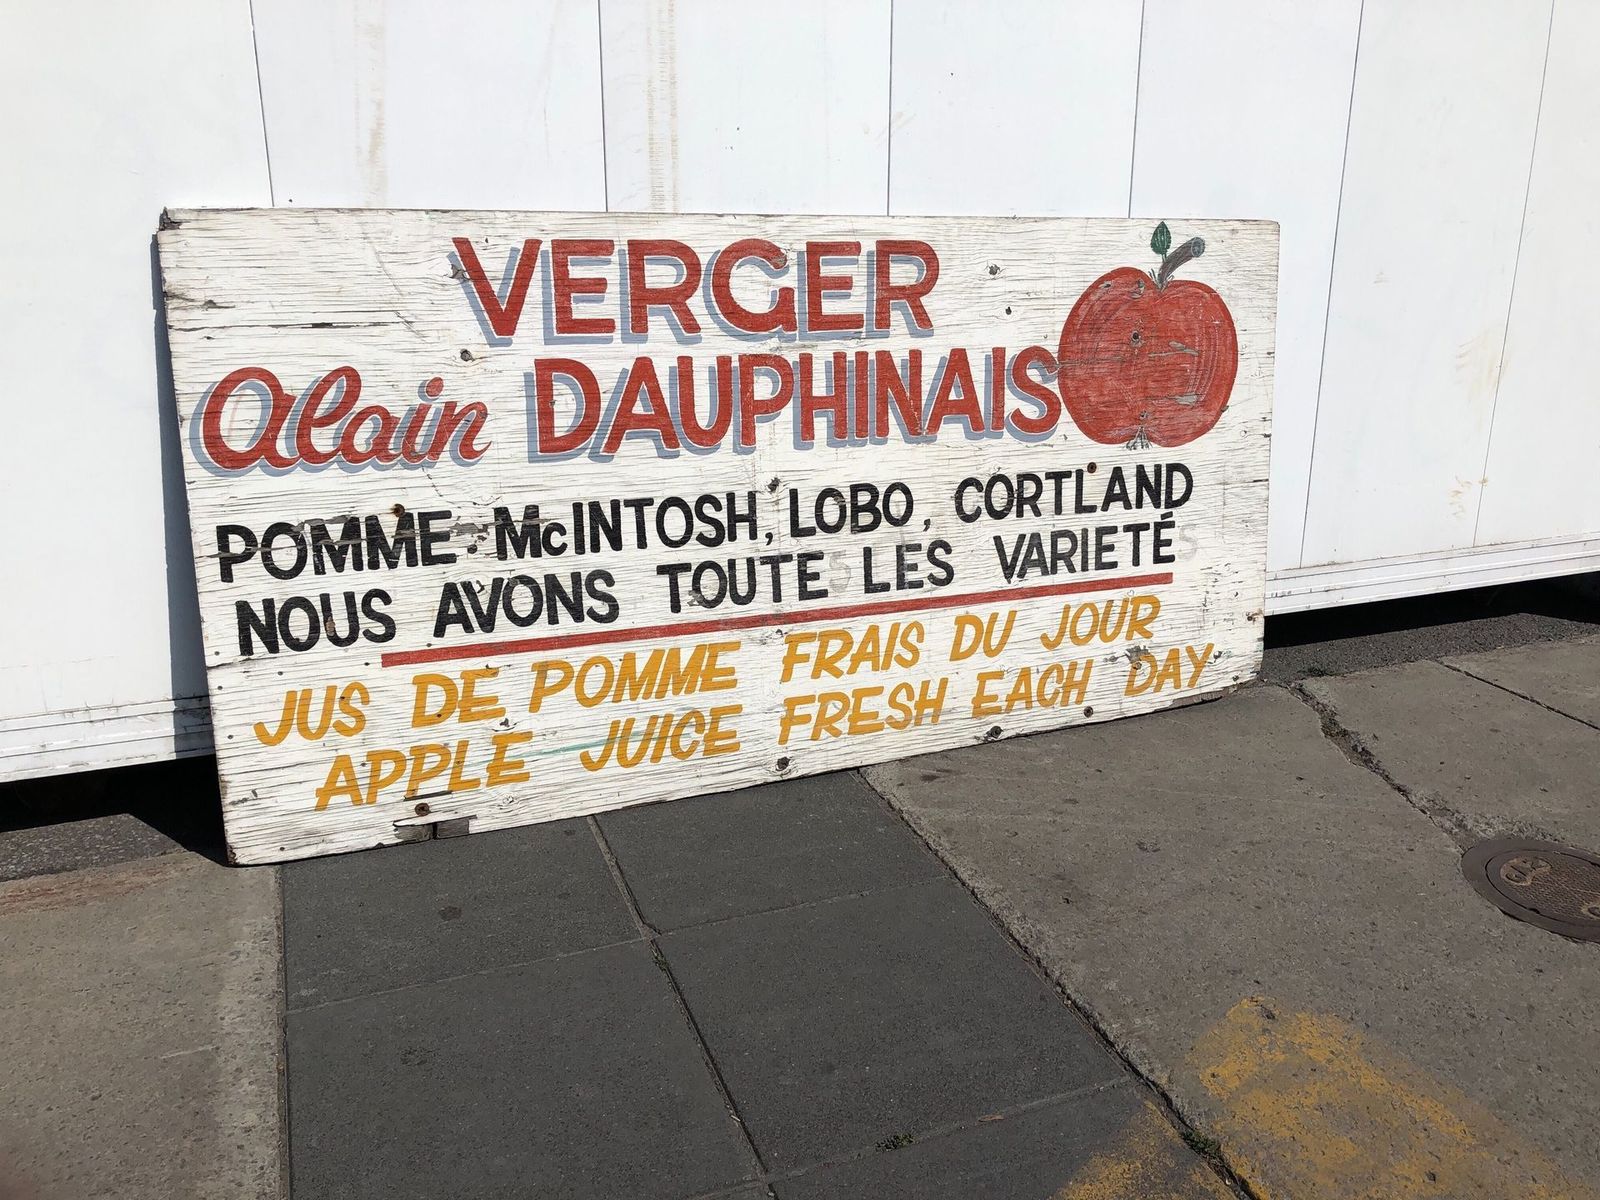 VERGER
Alain DAUPHINAIS
POMME: McINTOSH, LOBO, CORTLAND
NOUS AVONS TOUTES LES VARIETÉS
JUS DE POMME FRAIS DU JOUR
APPLE JUICE FRESH EACH DAY